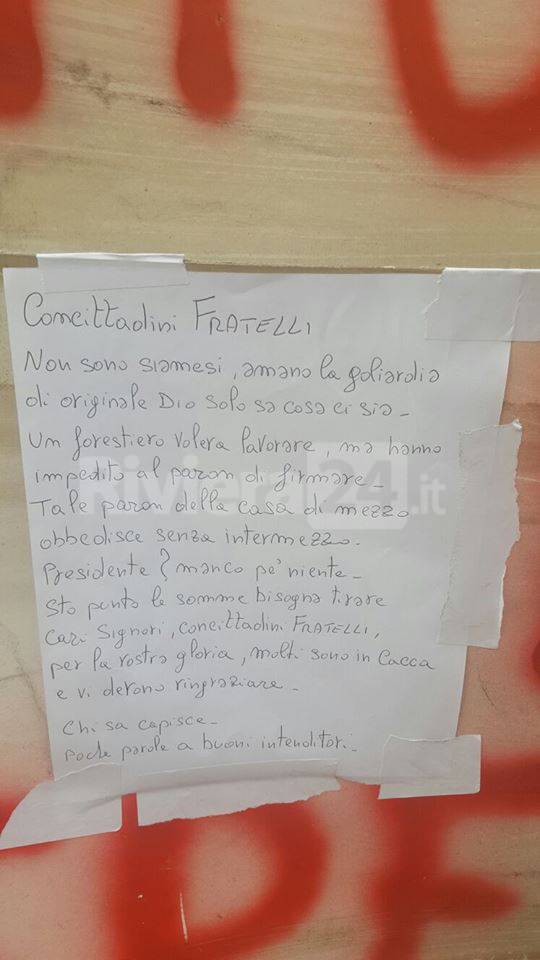 Concittadini FRATELLI
Non sono siamesi, amano la goliardia
di originale Dio solo sa cosa ci sia -
Un forestiero voleva lavorare, ma hanno
impedito al paron di firmare -
Tale paron della casa di mezzo
obbedisce senza intermezzo.
Presidente? manco pe' niente -
Sto punto le somme bisogna tirare
Cari Signori, concittadini FRATELLI,
per la vostra gloria, molti sono in Cacca
e vi devono ringraziare -
Chi sa capisce -
poche parole a buoni intenditori -
Riviera24.it